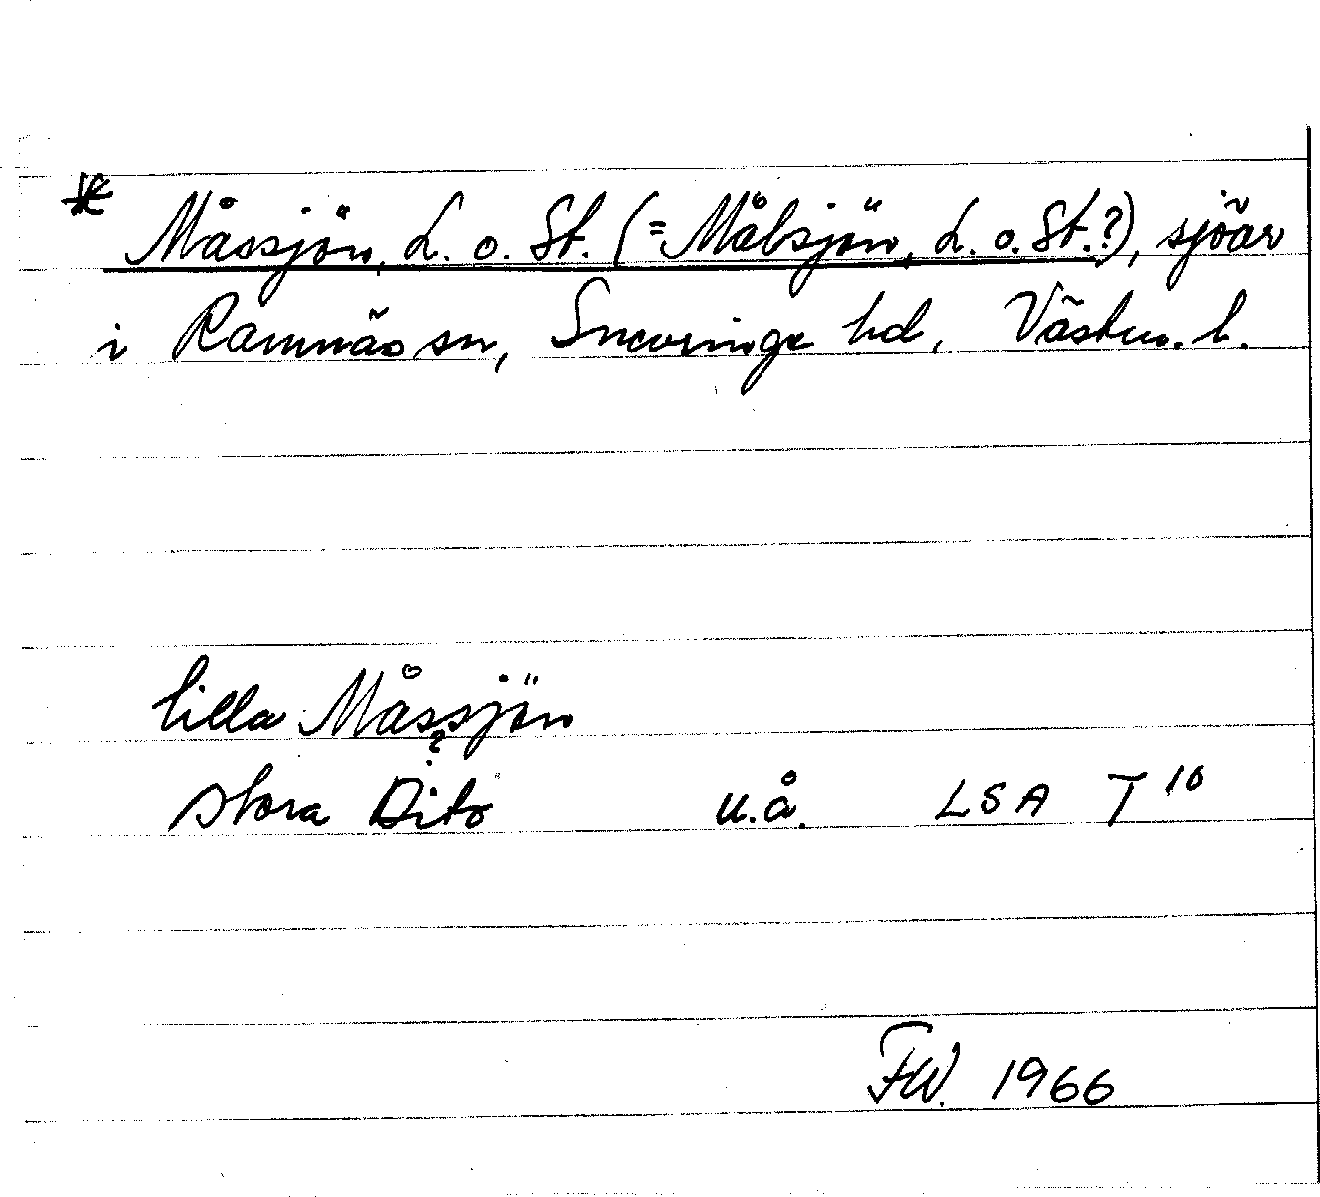 * Måssjön, L. o. St. (= Målsjön, L. o. St.?), sjöar
i Ramnäs sn, Snevringe hd, Västm. l.
lilla Måssjön
?
stora Dito u.å. LSA T 10
FW. 1966